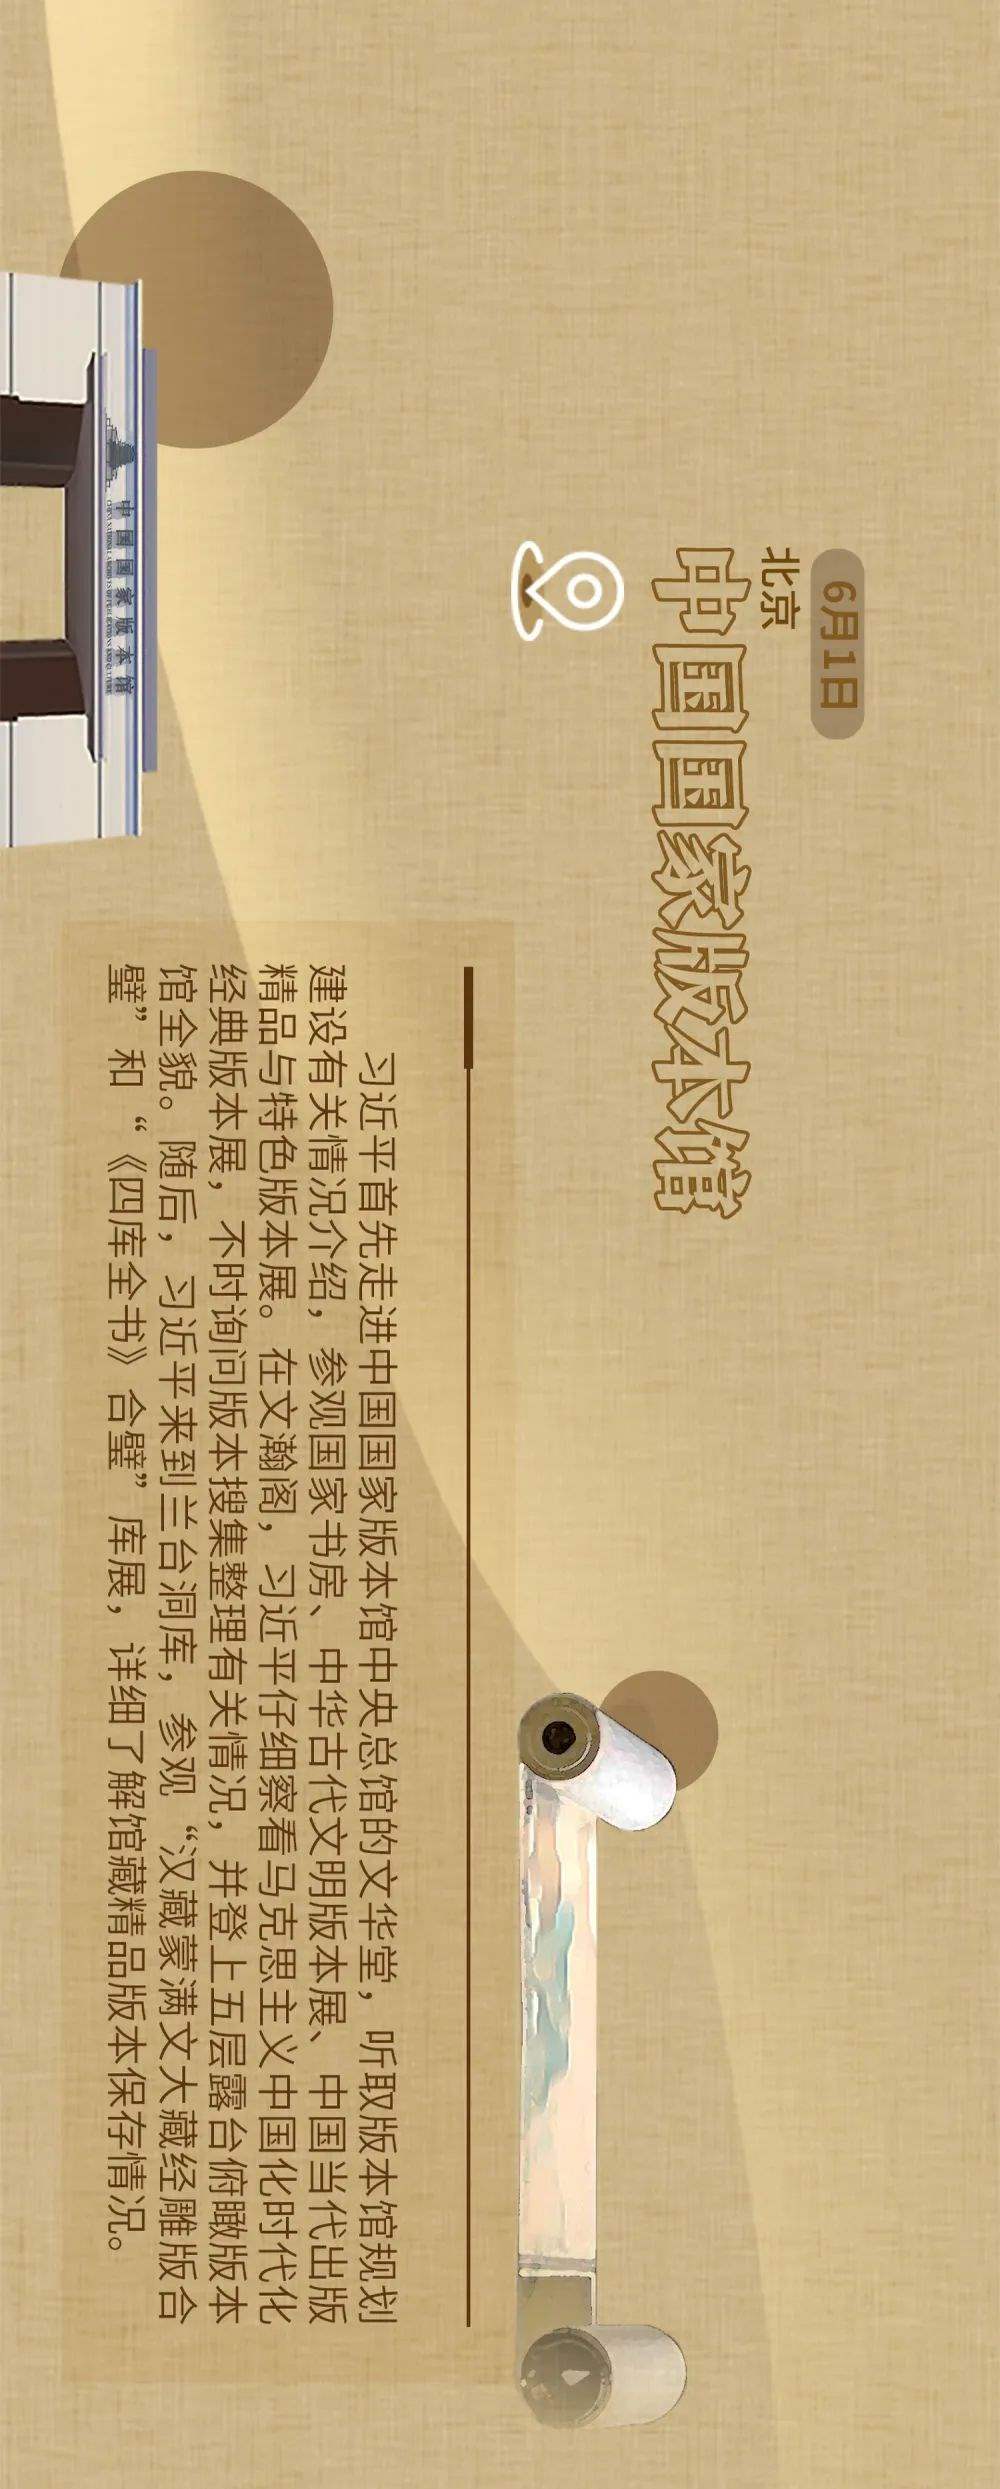 6月1日
北京
中国国家版本馆
习近平首先走进中国国家版本馆中央总馆的文华堂，听取版本馆规划
建设有关情况介绍，参观国家书房、中华古代文明版本展、中国当代出版
精品与特色版本展。在文瀚阁，习近平仔细察看马克思主义中国化时代化
经典版本展，不时询问版本搜集整理有关情况，并登上五层露台俯瞰版本
馆全貌。随后，习近平来到兰台洞库，参观“汉藏蒙满文大藏经雕版合
璧”和“《四库全书》合璧”库展，详细了解馆藏精品版本保存情况。
中国国家版本馆
CHINA NATIONAL ARCHIVES OF PUBLICATIONS AND CULTURE